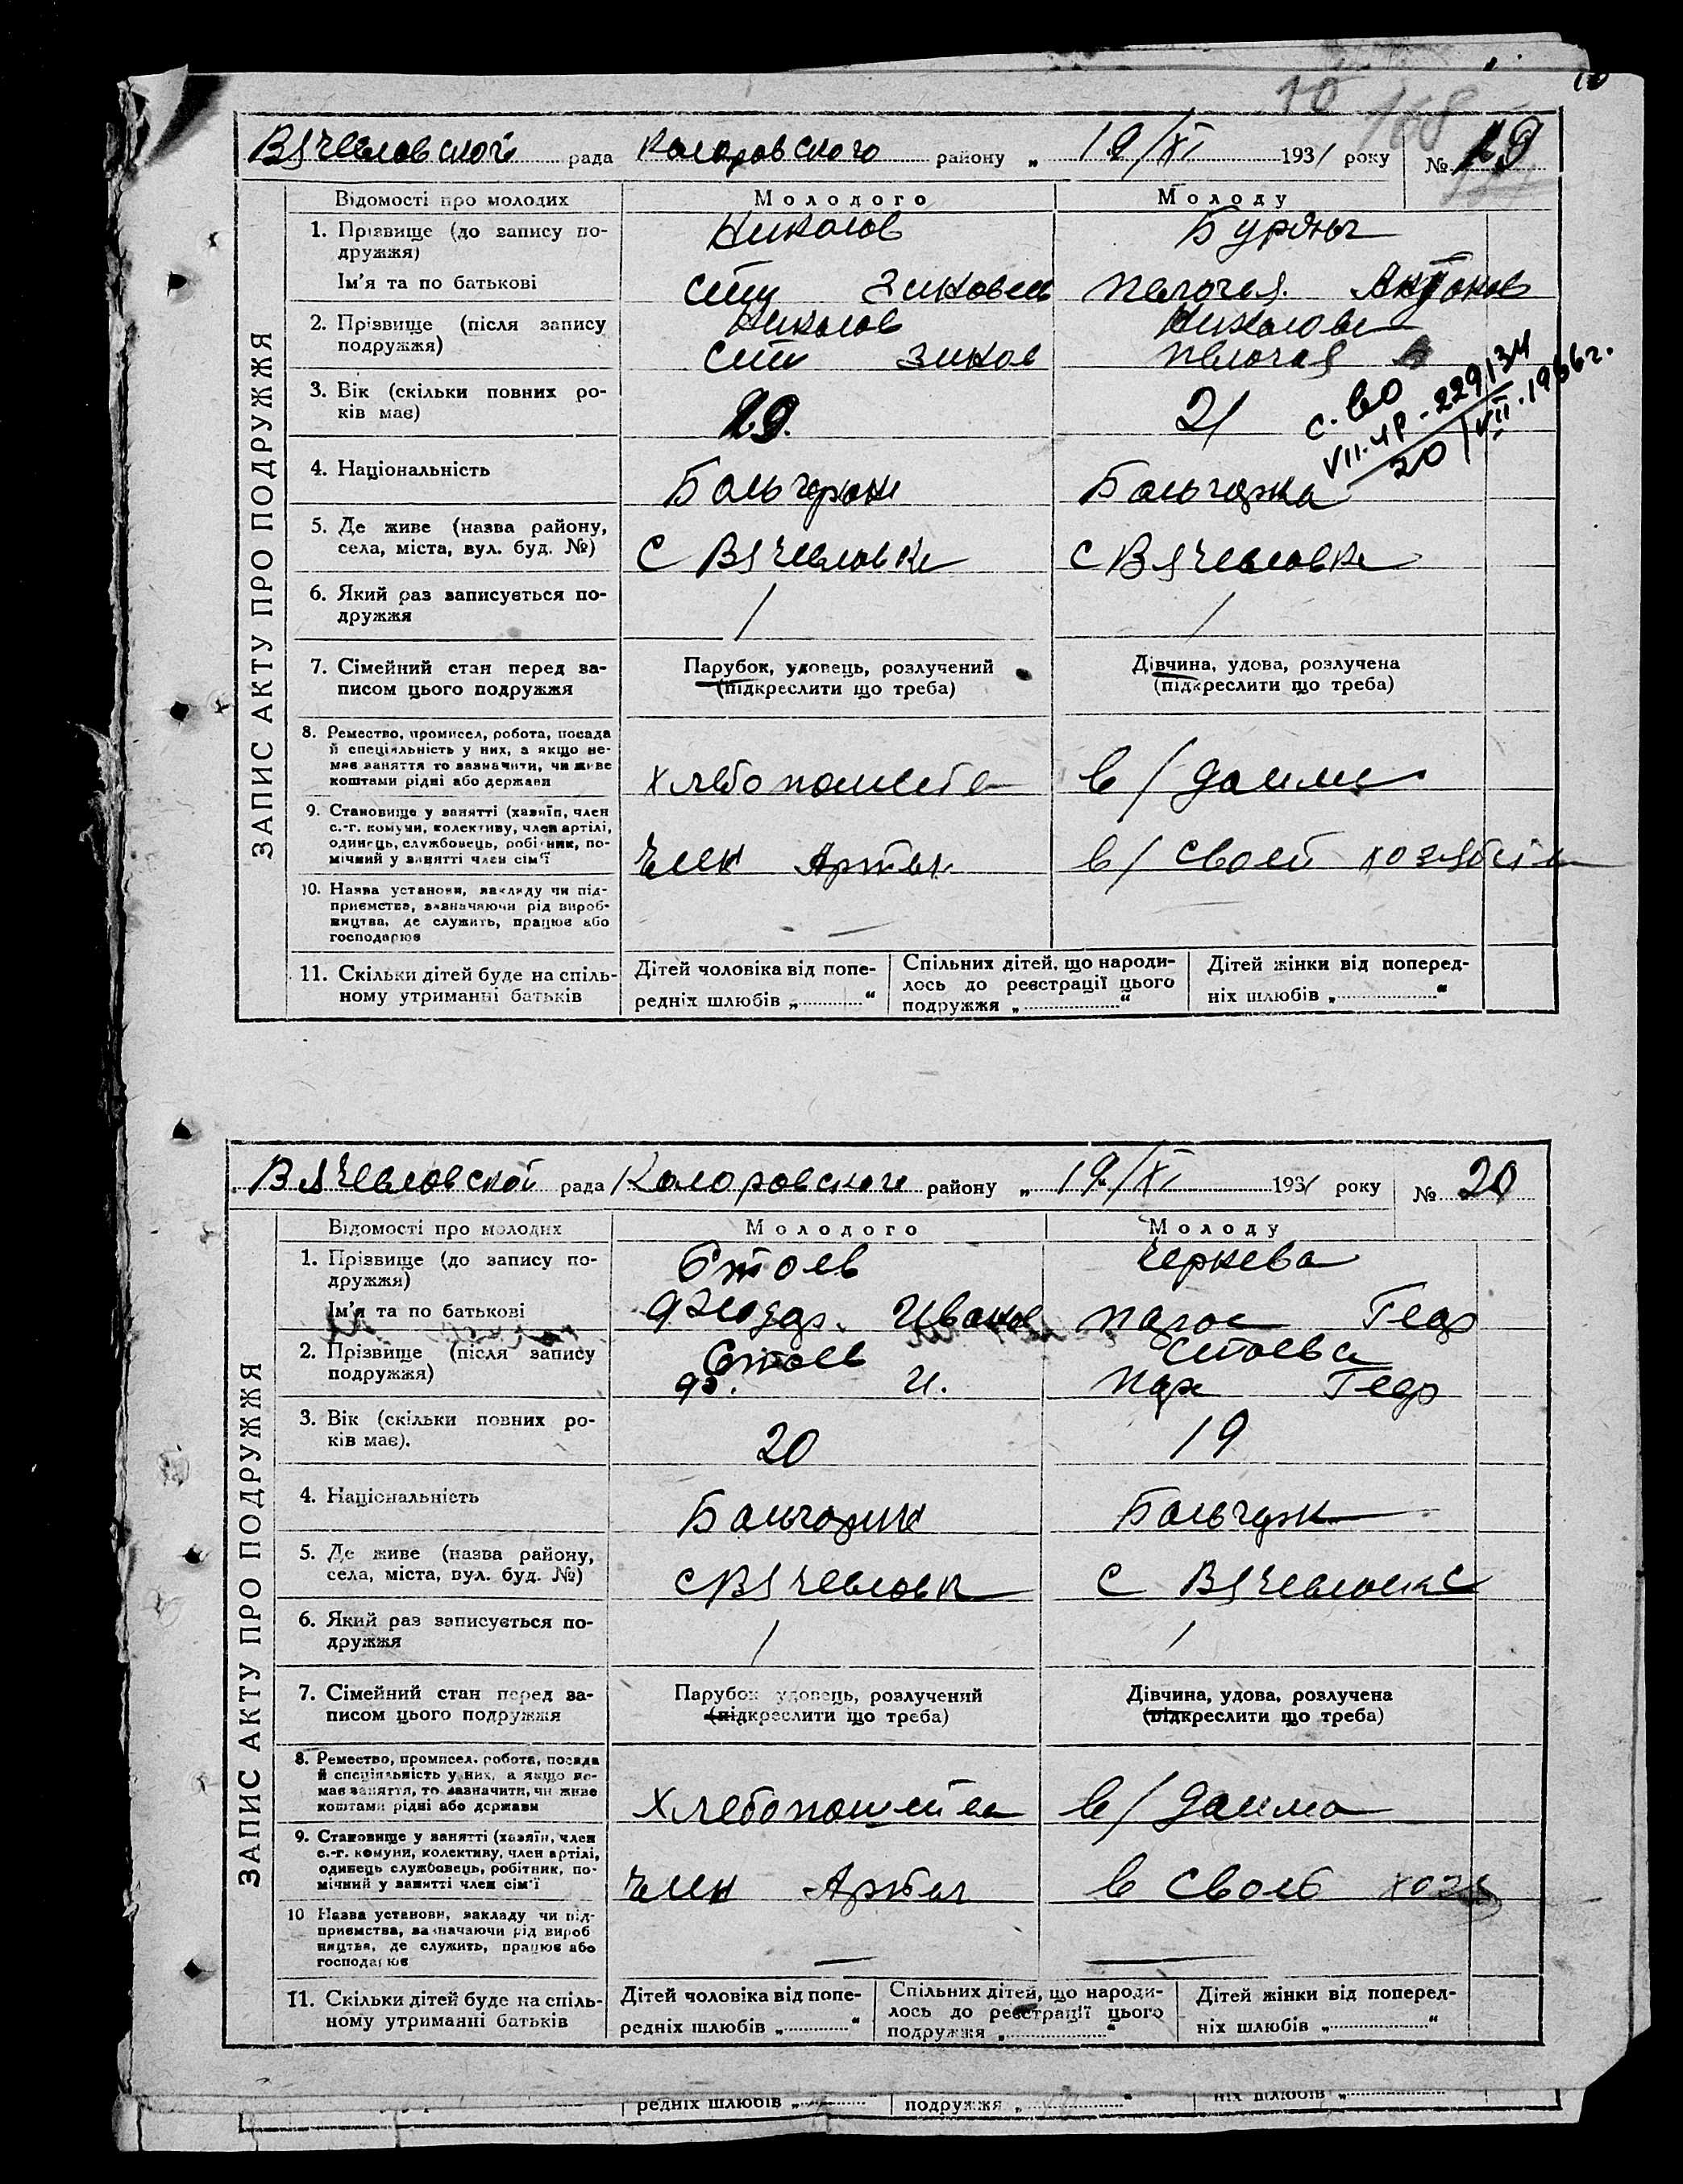 10 168
Вячеславской рада Коларовского району „ 19/XI 1931 року № 19
Відомості про молодих Молодого Молоду
1. Прізвище (до запису по-
дружжя) Николов
Ім'я та по батькові
2. Прізвище (після запису
подружжя) Николов Николова
3. Вік (скільки повних ро-
ків має) 21
с. во
VII. ЧР - 229134
20/VII. 1966 г.
4. Національність Больгарин Больгарка
5. Де живе (назва району,
села, міста, вул. буд. №) С Вячеславка С Вячеславка
6. Який раз записується по-
дружжя 1 1
7. Сімейний стан перед за-
писом цього подружжя Парубок, удовець, розлучений
(підкреслити що треба) Дівчина, удова, розлучена
(підкреслити що треба)
8. Ремество, промисел, робота, посада
й спеціяльність у них, а якщо не-
має заняття то зазначити, чи живе
коштами рідні або держави хлебопашество в/дома
9. Становище у занятті (хазяїн, член
с.-г. комуни, колективу, член артілі,
одинець, службовець, робітник, по-
мічний у занятті член сім'ї Член Артели в/ своем хозяйстве
10. Назва установи, закладу чи під-
приємства, зазначаючи рід вироб-
ництва, де служить, працює або
господарює —
11. Скільки дітей буде на спіль-
ному утриманні батьків Дітей чоловіка від попе-
редніх шлюбів „ “ Спільних дітей, що народи-
лось до реєстрації цього
подружжя „ “ Дітей жінки від поперед-
ніх шлюбів „ “
ЗАПИС АКТУ ПРО ПОДРУЖЖЯ
Вячеславской рада Коларовского району „ 19/XI 1931 року № 20
Відомості про молодих Молодого Молоду
1. Прізвище (до запису по-
дружжя) Стоев Черкева
Ім'я та по батькові Иванов Геор
2. Прізвище (після запису
подружжя) Стоев Стоева
И. Геор
3. Вік (скільки повних ро-
ків має). 20 19
4. Національність Больгарин Больгарк
5. Де живе (назва району,
села, міста, вул. буд. №) С Вячеславк С Вячеславк
6. Який раз записується по-
дружжя 1 1
7. Сімейний стан перед за-
писом цього подружжя Парубок удовець, розлучений
(підкреслити що треба) Дівчина, удова, розлучена
(підкреслити що треба)
8. Ремество, промисел, робота, посада
й спеціяльність у них, а якщо не-
має заняття, то зазначити, чи живе
коштами рідні або держави Хлебопашества в/дома
9. Становище у занятті (хазяїн, член
с.-г. комуни, колективу, член артілі,
одинець службовець, робітник, по-
мічний у занятті член сім'ї Член Артел в своеб хозя
10 Назва установи, закладу чи під-
приємства, зазначаючи рід вироб
ництва, де служить, працює або
господарює — —
11. Скільки дітей буде на спіль-
ному утриманні батьків Дітей чоловіка від попе-
редніх шлюбів „ “ Спільних дітей, що народи-
лось до реєстрації цього
подружжя „ “ Дітей жінки від поперед-
ніх шлюбів „ “
ЗАПИС АКТУ ПРО ПОДРУЖЖЯ
редніх шлюбів „ “ подружжя „ “ ніх шлюбів „